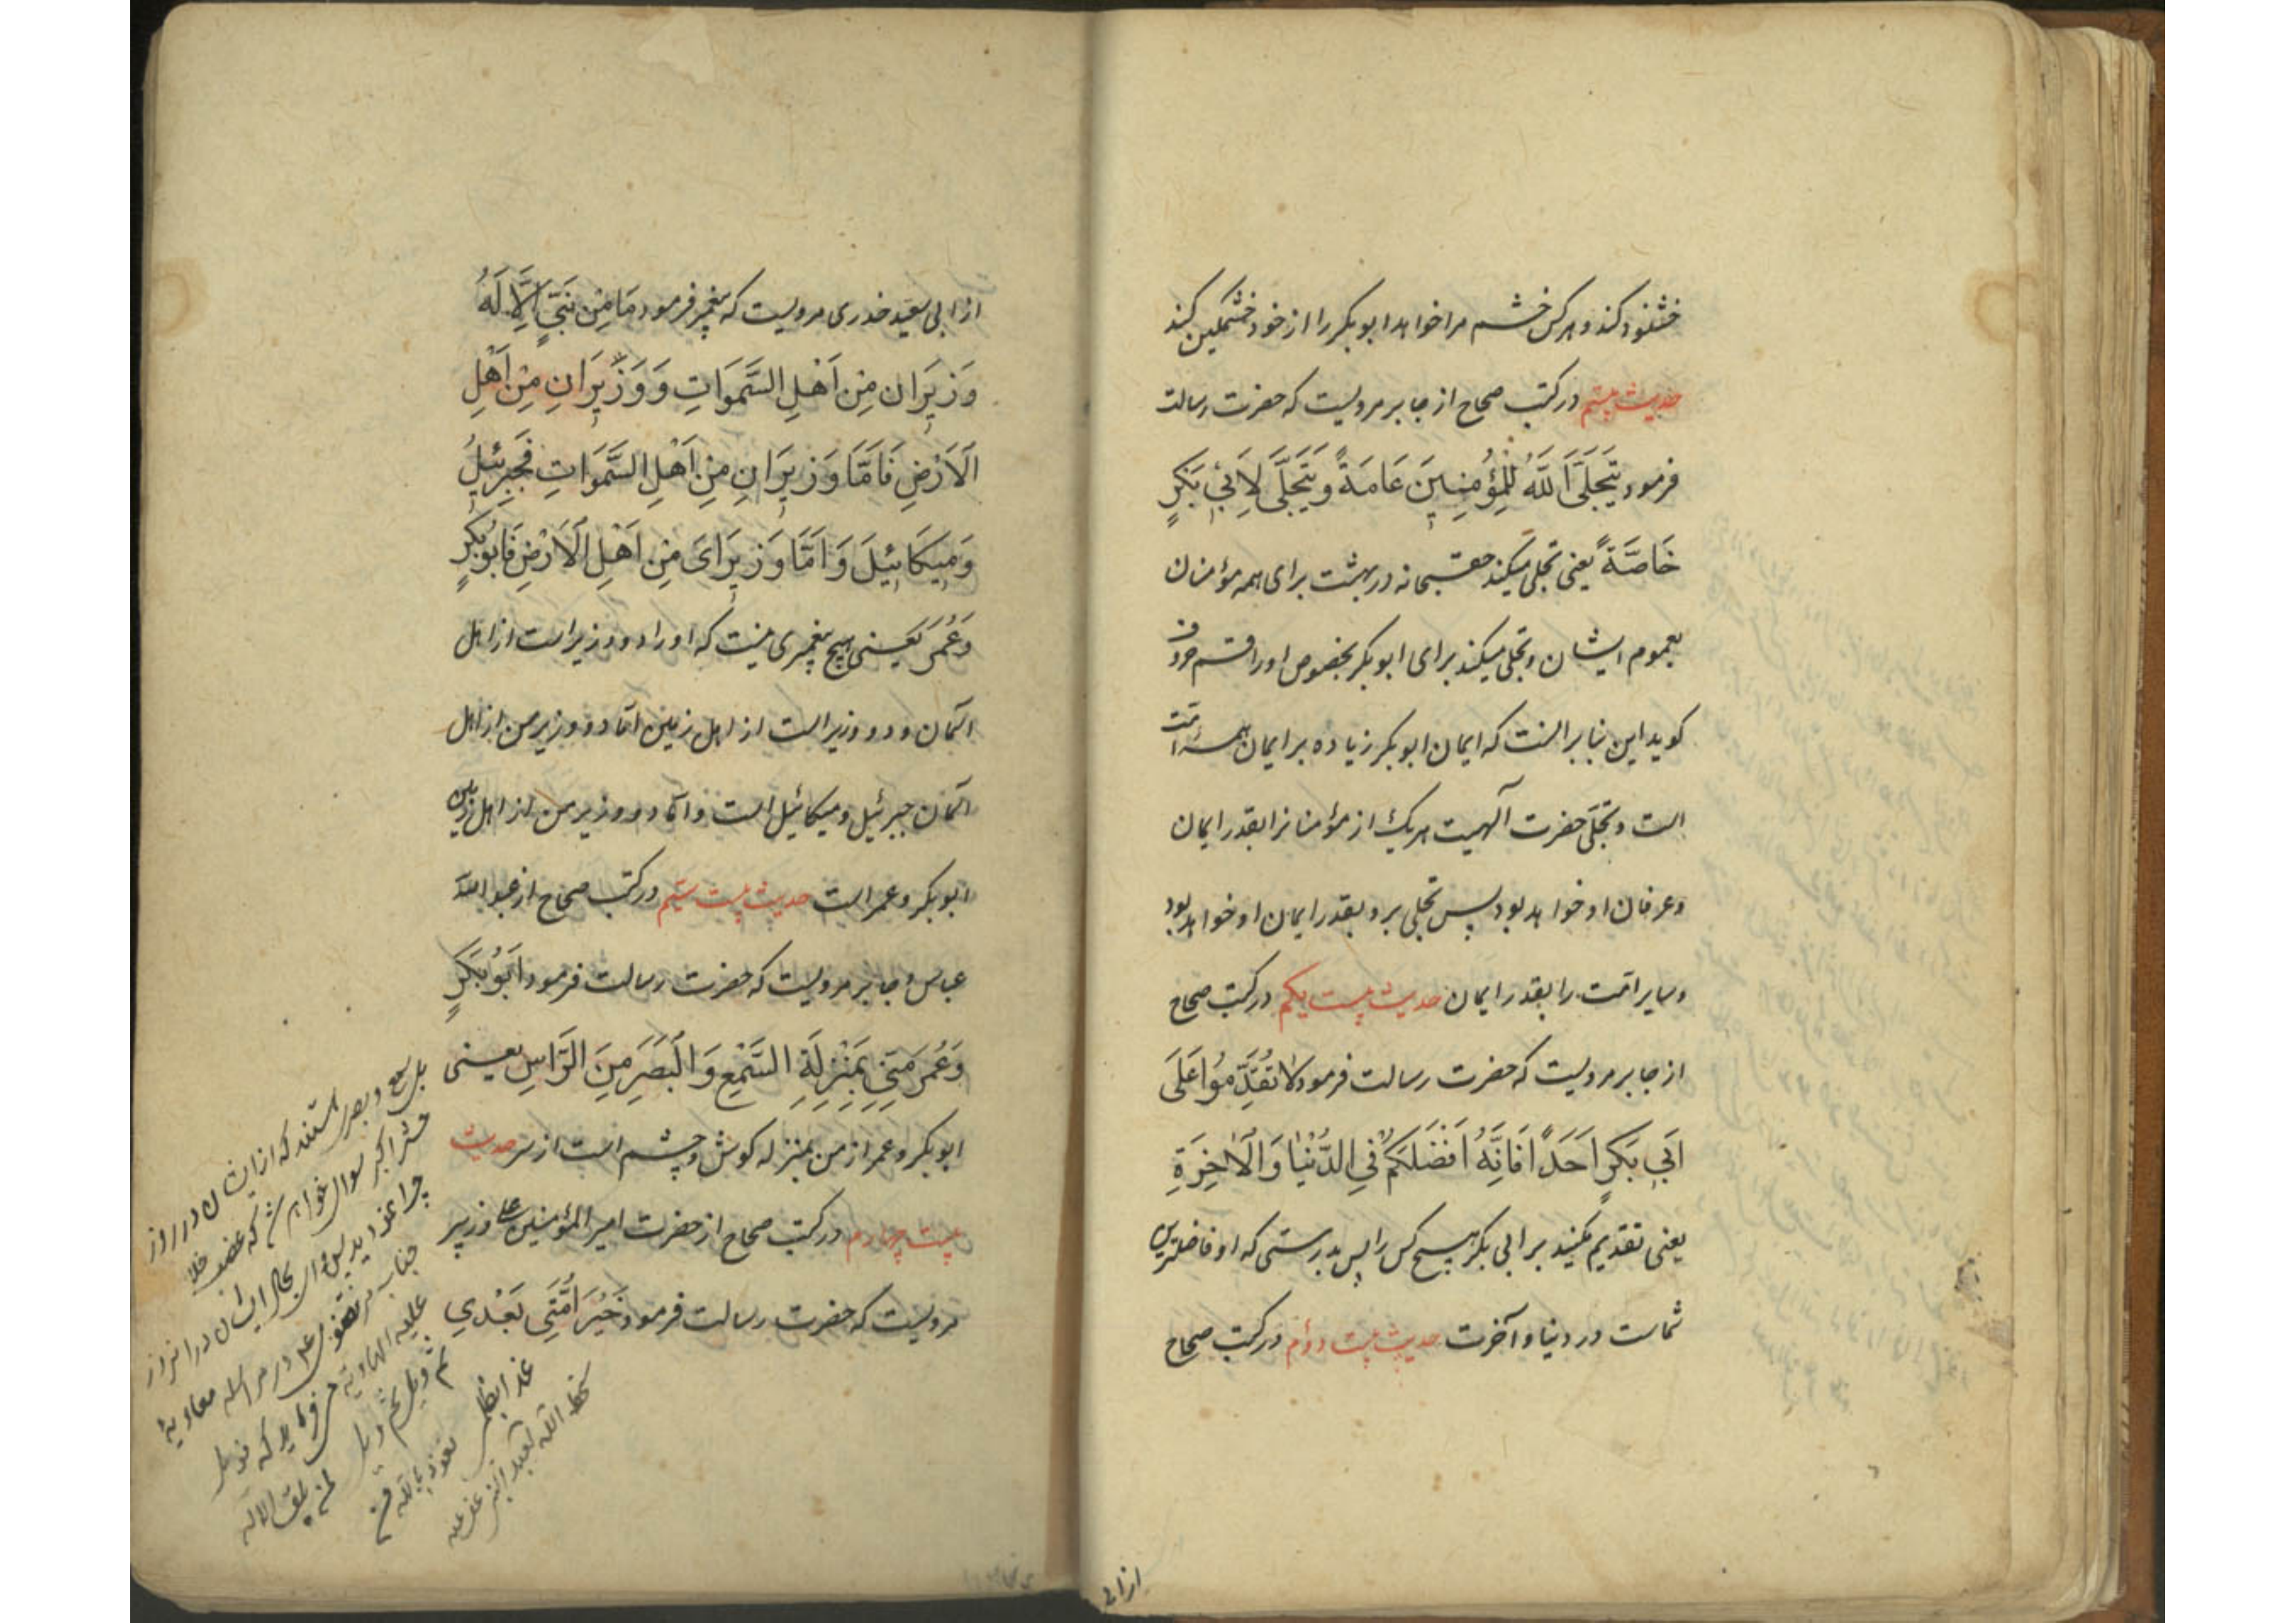 خشنود کند و هر کس خشم مرا خواهد ابو بکر را از خود خشمگین کند
حدیث بیستم در کتب صحاح از جابر مرویست که حضرت رسالت
فرمود یَتَجَلَّی اَللّهُ لِلْمُؤْمِنِینَ عَامَةً وَیَتَجَلَّی لِاَبِی بَکْرٍ
خَاصَّةً یعنی تجلی میکند حقسبحانه در بهشت برای همه مؤمنان
بعموم ایشان و تجلی میکند برای ابو بکر بخصوص او راقم حروف
کوید این بنابر انست که ایمان ابو بکر زیاده بر ایمان همه امت
است و تجلّی حضرت آلهیت هر یک از مؤمنانرا بقدر ایمان
و عرفان او خواهد بود پس تجلی برو بقدر ایمان او خواهد بود
و سایر امّت را بقدر ایمان حدیث بیست یکم در کتب صحاح
از جابر مرویست که حضرت رسالت فرمود لا تُقَدِّمُوا عَلَی
اَبِی بَکْرٍ اَحَدًا فَاِنَّهُ اَفْضَلُکُمْ فِی الدُّنْیَا وَالْاٰخِرَةِ
یعنی تقدیم مکنید بر ابی بکر هیچ کس را پس بدرستی که او فاضلترین
شماست در دنیا و آخرت حدیث بیست دوم در کتب صحاح
از ابی
از ابی سعید خدری مرویست که پیغمبر فرمود مَا مِنْ نَبِیٍّ اِلَّا لَهُ
وَزِیرَانِ مِنْ اَهْلِ السَّمَوَاتِ وَ وَزِیرَانِ مِنْ اَهْلِ
الْاَرْضِ فَاَمَّا وَزِیرَانِ مِنْ اَهْلِ السَّمَوَاتِ فَجِبْرِئِیلُ
وَمِیکَائِیلَ وَاَمَّا وَزِیرَایَ مِنْ اَهْلِ الْاَرْضِ فَاَبُو بَکْرٍ
وَعُمَرَ یعنی هیچ پیغمبری نیست که او را دو وزیر است از اهل
آسمان و دو وزیر است از اهل زمین امّا دو وزیر من از اهل
آسمان جبرئیل و میکائیل است و امّا دو وزیر من از اهل زمین
ابو بکر و عمر است حدیث بیست سیم در کتب صحاح از عبد اللّه
عباس و جابر مرویست که حضرت رسالت فرمود اَبُو بَکْرٍ
وَعُمَرَ مِنِّی بِمَنْزِلَةِ السَّمْعِ وَالْبَصَرِ مِنَ الرَّاسِ یعنی
ابو بکر و عمر از من بمنزله کوش و چشم است از سر حدیث
بیست چهارم در کتب صحاح از حضرت امیر المؤمنین علی و زبیر
مرویست که حضرت رسالت فرمود خَیْرَ اُمَّتِی بَعْدِی
بل سمع و بصر استند که از ایشان در روز
حشر اکبر سوال خواهم شد که غضب خلافت
چرا
بحال ایشان در آنروز
جناب مرتضوی علی در مراسله معاویه
علیه الهاویه میفرماید که فویل
ثم ویل ثم ویل لمن یلقی الاله
غدا بظلمی نعوذ باللّه